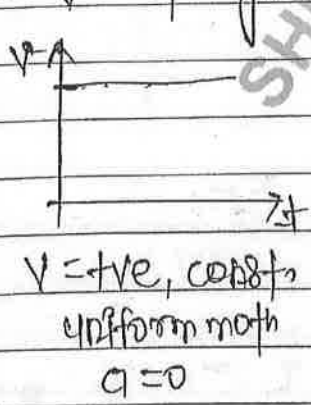 v
t
V = +ve, constn
uniform motn
a = 0